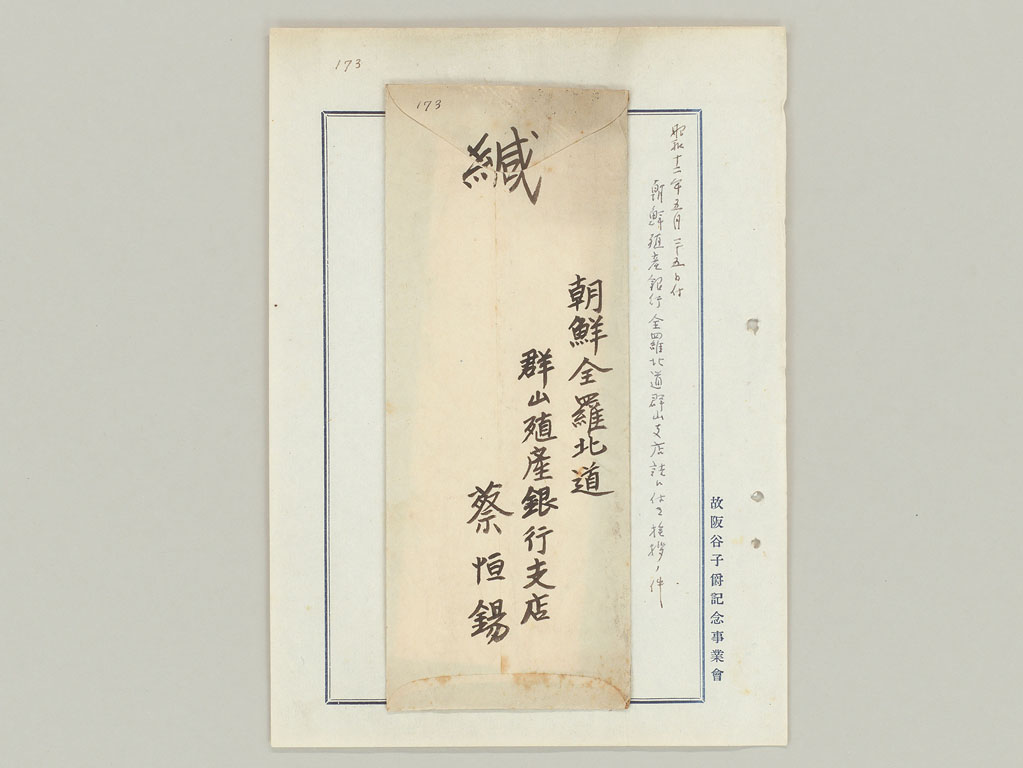 173
173
昭和十二年五月二十五日付
朝鮮殖産銀行全羅北道群山支店 付 挨拶ノ件
緘
朝鮮全羅北道
群山殖産銀行支店
蔡恒錫
故阪谷子爵記念事業會